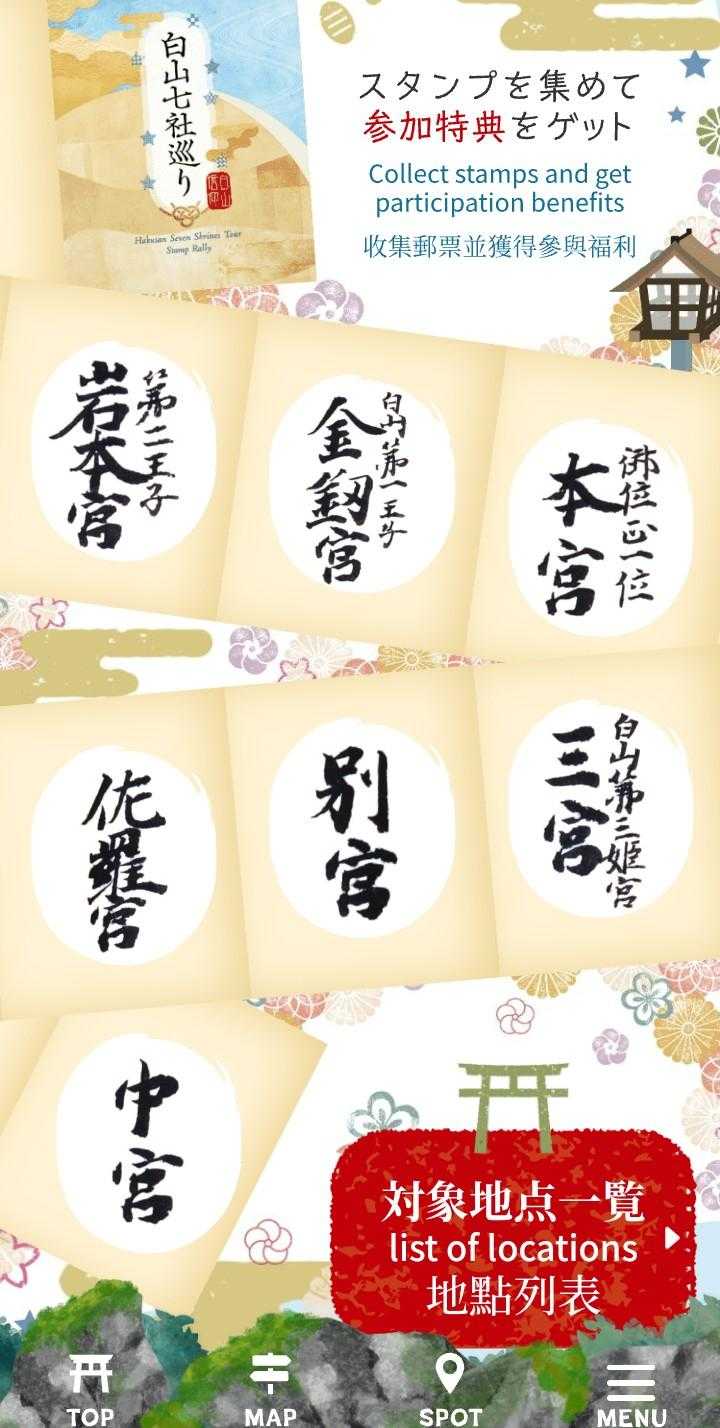 白山七社巡り
白山
信仰
Hakusan Seven Shrines Tour
Stamp Rally
スタンプを集めて
参加特典をゲット
Collect stamps and get
participation benefits
收集郵票並獲得參與福利
第二王子
岩本宮
白山第一王子
金劔宮
正一位
本宮
佐羅宮
別宮
白山第三姫宮
三宮
中宮
対象地点一覧
list of locations
地點列表
TOP
MAP
SPOT
MENU